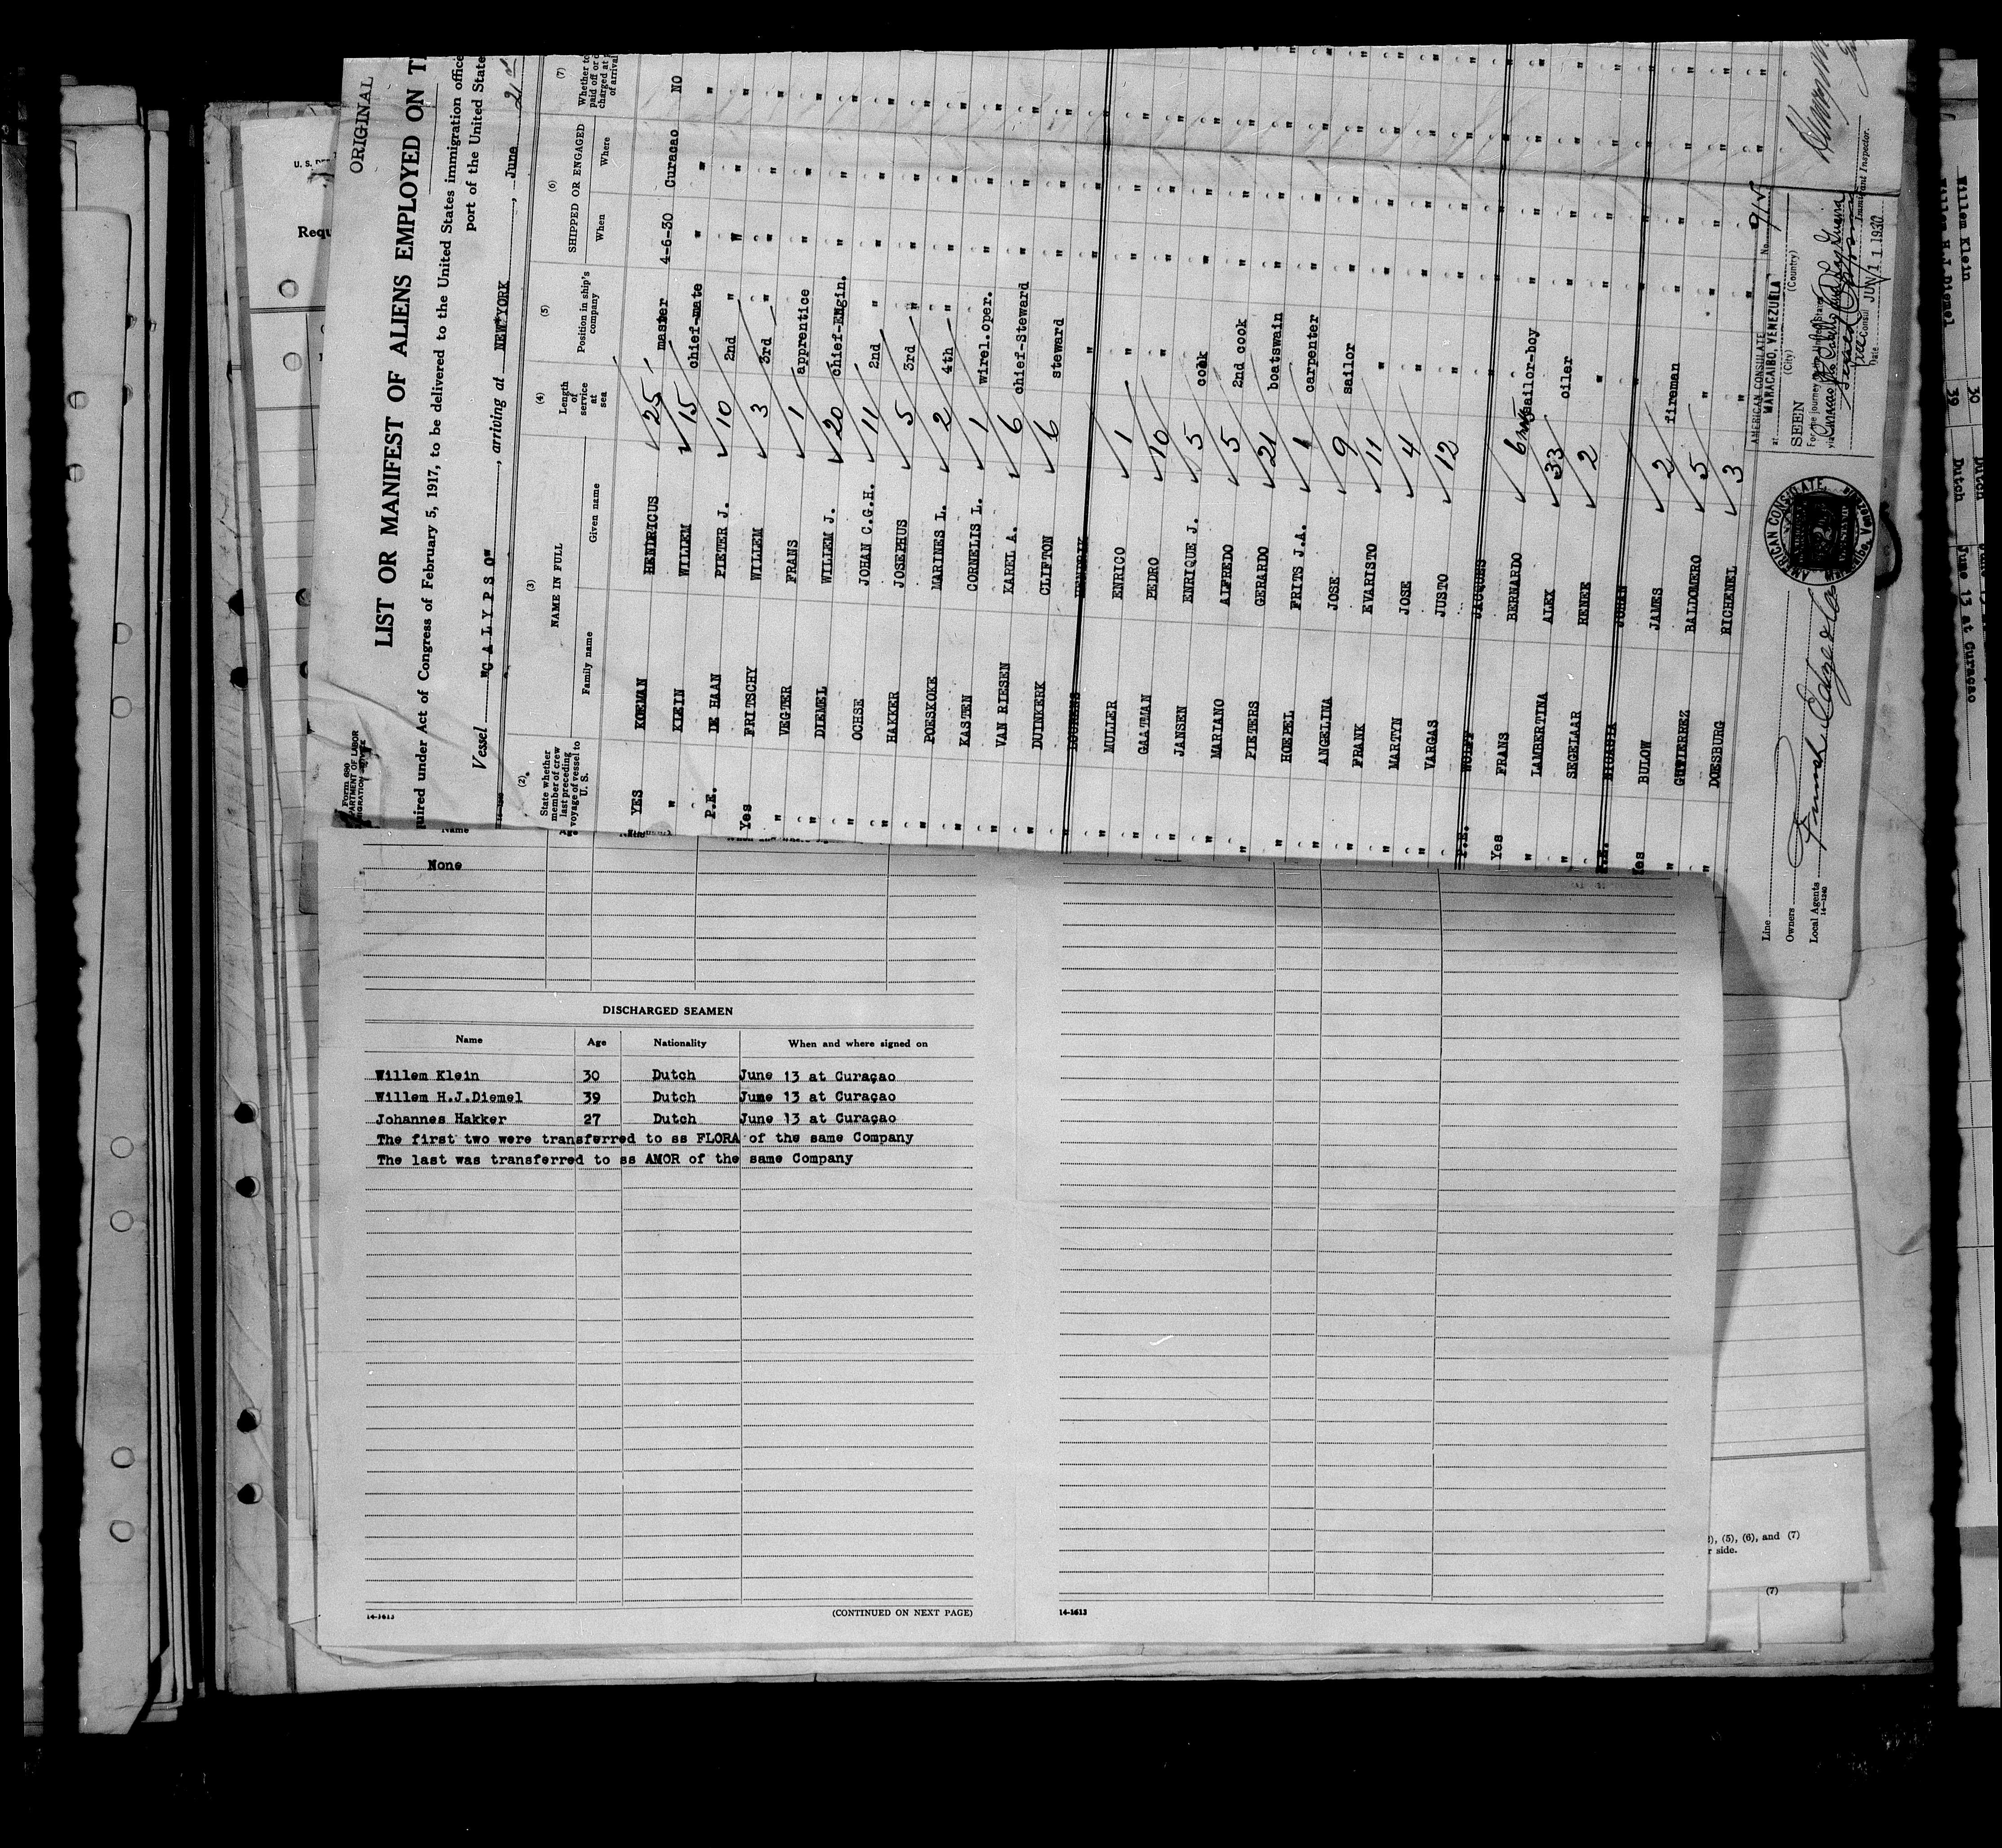 ORIGINAL
Form 680
LIST OR MANIFEST OF ALIENS EMPLOYED ON
quired under Act of Congress of February 5, 1917, to be delivered to the United States immigration office
port of the United State
Vessel "C A L Y P S O", arriving at NEW YORK, June 21
(2) (3) (4) (5) (6) (7)
State whether member of crew last preceding voyage of vessel to U. S. NAME IN FULL Length of service at sea Position in ship's company SHIPPED OR ENGAGED Whether to paid off or charged at of arrival
Family name Given name When Where
YES KOEMAN HENDRICUS 25 master 4-6-30 Curaçao NO
" KLEIN WILLEM 15 chief-mate " " "
P.E. DE HAAN PIETER J. 10 2nd " " " "
Yes FRITSCHY WILLEM 3 3rd " " " "
" VEGTER FRANS 1 apprentice " " "
" DIEMEL WILLEM J. 20 chief-Engin. " " "
" OCHSE JOHAN C.G.H. 11 2nd " " " "
" HAKKER JOSEPHUS 5 3rd " " " "
" POESKOKE MARINES L. 2 4th " " " "
" KASTEN CORNELIS L. 1 wirel.oper. " " "
" VAN RIESEN KAREL A. 6 chief-Steward " " "
" DUINKERK CLIFTON 6 steward " " "
" HENDRIK " " " "
" MULLER ENRICO 1 " " " "
" GAATMAN PEDRO 10 " " " "
" JANSEN ENRIQUE J. 5 cook " " "
" MARIANO ALFREDO 5 2nd cook " " "
" PIETERS GERARDO 21 boatswain " " "
" HOEPEL FRITS J.A. 1 carpenter " " "
" ANGELINA JOSE 9 sailor " " "
" FRANK EVARISTO 11 " " " "
" MARTYN JOSE 4 " " " "
" VARGAS JUSTO 12 " " " "
P.E. WOLFF JACQUES " " " "
Yes FRANS BERNARDO 6 sailor-boy " " "
" LAMBERTINA ALEX 33 oiler " " "
" SEGELAAR RENEE 2 " " " "
JOHAN " " "
Yes BULOW JAMES 2 fireman " " "
" GUTIERREZ BALDOMERO 5 " " " "
" DOESBURG RICHENEL 3 " " " "
Line
Owners
Local Agents
14-1240
AMERICAN CONSULATE
at MARACAIBO, VENEZUELA No.
(City) (Country)
SEEN
For the journey to the United States
via Curacao
Vice Consul
Date JUN 11 1930
Immigrant Inspector.
AMERICAN CONSULATE
U. S.
Requ
Name
None
DISCHARGED SEAMEN
Name Age Nationality When and where signed on
Willem Klein 30 Dutch June 13 at Curaçao
Willem H.J.Diemel 39 Dutch June 13 at Curaçao
Johannes Hakker 27 Dutch June 13 at Curaçao
The first two were transferred to ss FLORA of the same Company
The last was transferred to ss AMOR of the same Company
14-1613 (CONTINUED ON NEXT PAGE)
14-1613
), (5), (6), and (7)
r side.
(7)
Willem Klein 30 Dutch
Willem H.J.Diemel 39 Dutch June 13 at Curaçao